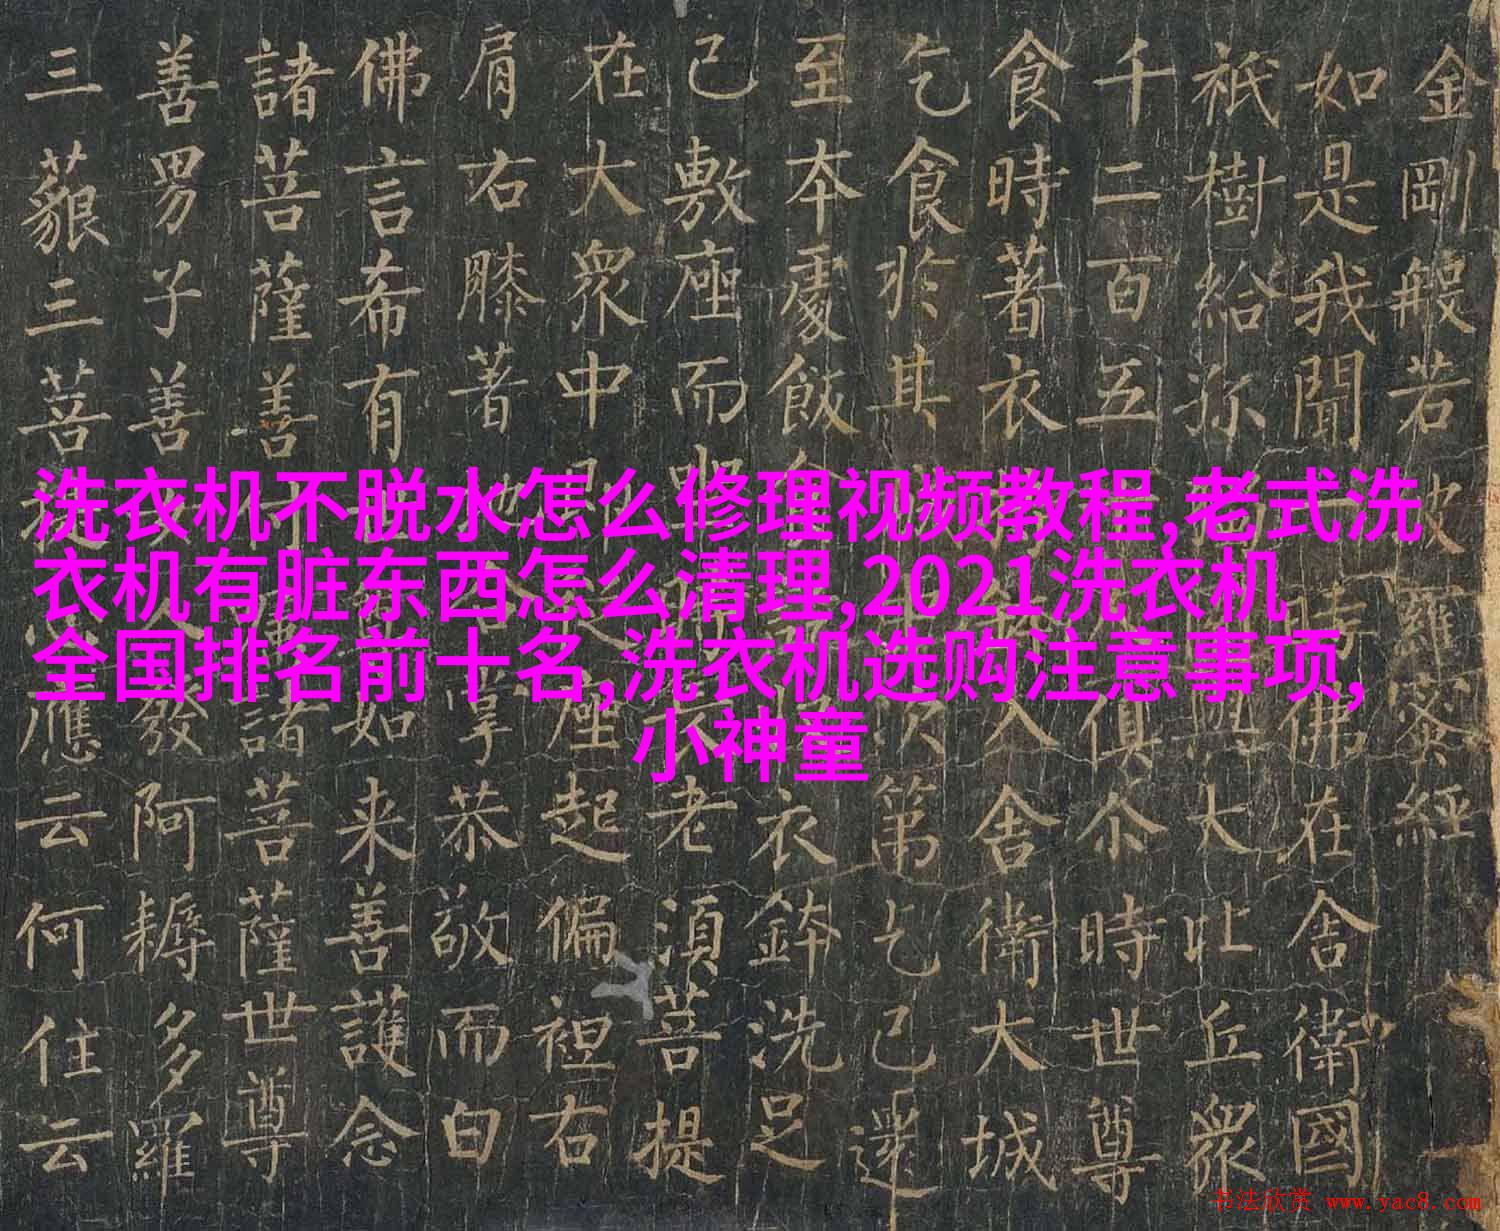 洗衣机不脱水怎么修理视频教程,老式洗
衣机有脏东西怎么清理,2021洗衣机
全国排名前十名,洗衣机选购注意事项,
小神童
金剛般若波羅蜜經
如是我聞時佛在舍衛國
祇樹給孤與大比丘衆
千二百五俱尒時世尊
食時著衣入舍衛大城
乞食於其次第乞已還
至本處飯食衣鉢洗足
已敷座而坐老須菩提
在大衆中座起偏袒右
肩右膝著地掌恭敬而白
佛言希有如来善護念
諸菩薩善付諸菩薩世尊
善男子善發阿耨多羅
三藐三菩提應云何住云
书法欣赏 www.yac8.com